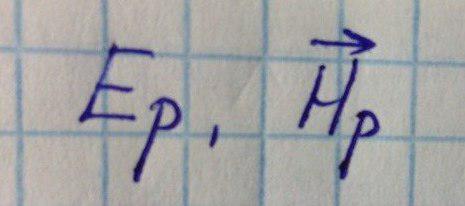 E_p, \vec{H}_p